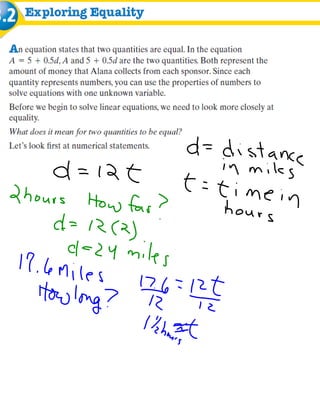 3.2 Exploring Equality
An equation states that two quantities are equal. In the equation
A = 5 + 0.5d, A and 5 + 0.5d are the two quantities. Both represent the
amount of money that Alana collects from each sponsor. Since each
quantity represents numbers, you can use the properties of numbers to
solve equations with one unknown variable.
Before we begin to solve linear equations, we need to look more closely at
equality.
What does it mean for two quantities to be equal?
Let's look first at numerical statements.
d = distance
in miles
d = 12t
t = time in
hours
2hours How far?
d = 12(2)
d = 24 miles
17.6 Miles
How long?
17.6 = 12t
12 12
1 1/2 hours ≈ t